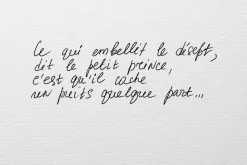 Ce qui embellit le désert,
dit le petit prince,
c'est qu'il cache
un puits quelque part...